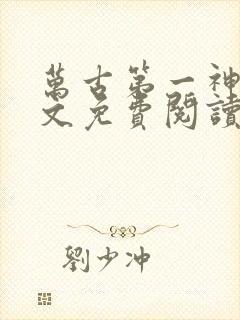 萬古第一神
文免費閱讀
劉少冲